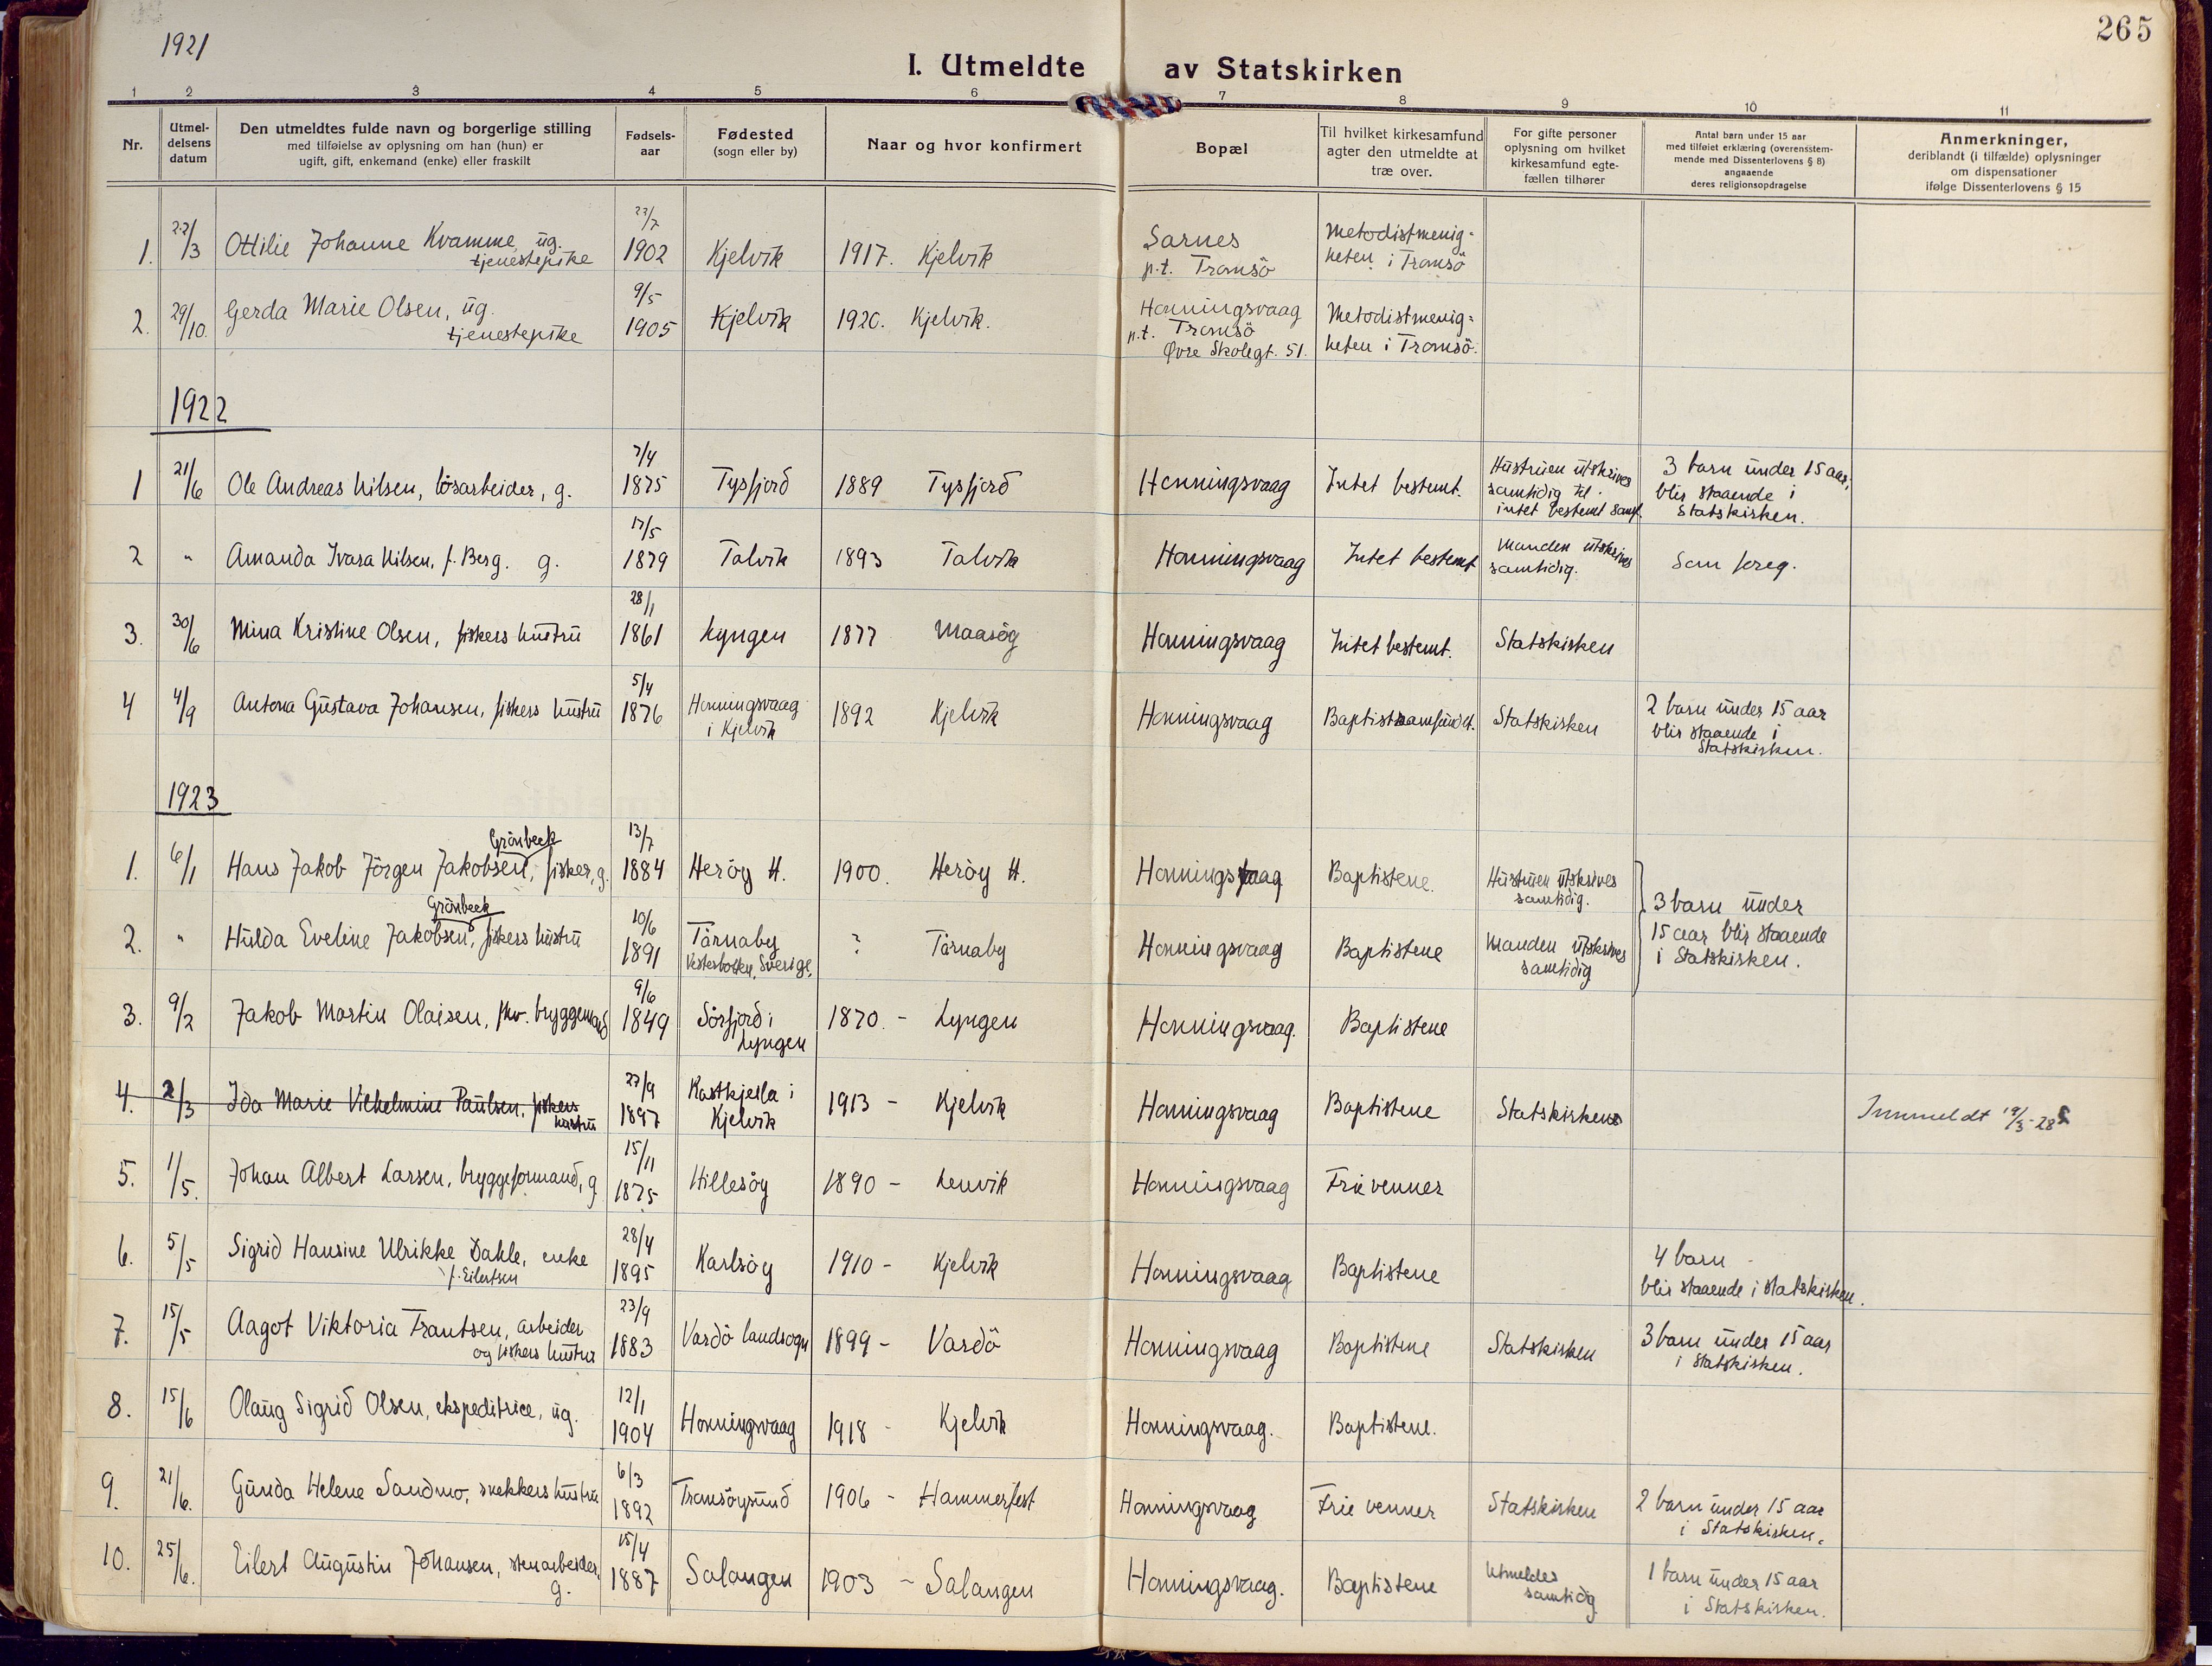 265
1921
I. Utmeldte av Statskirken
1 2 3 4 5 6 7 8 9 10 11
Nr.
Utmel-
delsens
datum
Den utmeldtes fulde navn og borgerlige stilling
med tilføielse av oplysning om han (hun) er
ugift, gift, enkemand (enke) eller fraskilt
Fødsels-
aar
Fødested
(sogn eller by)
Naar og hvor konfirmert
Bopæl
Til hvilket kirkesamfund
agter den utmeldte at
træ over.
For gifte personer
oplysning om hvilket
kirkesamfund egte-
fællen tilhører
Antal barn under 15 aar
med tilføiet erklæring (overensstem-
mende med Dissenterlovens § 8)
angaaende
deres religionsopdragelse
Anmerkninger,
deriblandt (i tilfælde) oplysninger
om dispensationer
ifølge Dissenterlovens § 15
1. 22/3 Ottilie Johanne Kvamme, ug.
tjenestepike
22/7
1902 Kjelvik 1917. Kjelvik
Sarnes
p.t. Tromsö
Metodistmenig=
heten i Tromsö
2. 29/10. Gerda Marie Olsen, ug.
tjenestepike
9/5
1905 Kjelvik 1920. Kjelvik.
Honningsvaag
p.t. Tromsö
Øvre Skolegt. 51.
Metodistmenig=
heten i Tromsö.
1922
1 21/6 Ole Andreas Nilsen, lösarbeider, g.
7/4
1875 Tysfjord 1889 Tysfjord Honningsvaag Intet bestemt.
Hustruen utskrives
samtidig til
intet bestemt samf.
3 barn under 15 aar,
blir staaende i
Statskirken.
2 " Amanda Ivara Nilsen, f. Berg. g.
17/5
1879 Talvik 1893 Talvik Honningsvaag Intet bestemt
Manden utskrives
samtidig.
Som foreg.
3. 30/6 Mina Kristine Olsen, fiskers hustru
28/1
1861 Lyngen 1877 Maasöy Honningsvaag Intet bestemt. Statskirken
4 4/9 Antona Gustava Johansen, fiskers hustru
5/4
1876
Honningsvaag
i Kjelvik
1892 Kjelvik Honningsvaag Baptistsamfundet. Statskirken
2 barn under 15 aar
blir staaende i
Statskirken.
1923
Grönbeck
1. 6/1 Hans Jakob Jörgen Jakobsen, fisker, g.
13/7
1884 Heröy H. 1900. Heröy H. Honningsvaag Baptistene.
Hustruen utskrives
samtidig.
Grönbeck
2. " Hulda Eveline Jakobsen, fiskers hustru
10/6
1891
Tärnaby
Vesterbotten, Sverige.
? Tärnaby Honningsvaag Baptistene
Manden utskrives
samtidig
3 barn under
15 aar blir staaende
i Statskirken.
3. 9/2 Jakob Martin Olaisen, fhv. bryggemand
9/6
1849
Sörfjord i
Lyngen
1870. - Lyngen Honningsvaag. Baptistene
4. 2/3 Ida Marie Vilhelmine Paulsen, fiskers
hustru
27/9
1897
i
Kjelvik
1913 - Kjelvik Honningsvaag Baptistene Statskirken
Innmeldt 19/3-28
5. 1/5. Johan Albert Larsen, bryggeformand, g
15/11
1875 Hillesöy 1890 - Lenvik Honningsvaag Frie venner
6. 5/5 Sigrid Hansine Ulrikke Dahle, enke
f. Eilertsen
28/4
1895 Karlsöy 1910 - Kjelvik Honningsvaag Baptistene
4 barn -
blir staaende i statskirken.
7. 15/5 Aagot Viktoria Frantsen, arbeider
og fiskers hustru
23/9
1883 Vardö landsogn 1899 - Vardö Honningsvaag Baptistene Statskirken
3 barn under 15 aar
i statskirken.
8. 15/6 Olaug Sigrid Olsen, ekspeditrice, ug.
12/1
1904 Honningsvaag 1918 - Kjelvik Honningsvaag. Baptistene.
9. 21/6. Gunda Helene Sandmo, snekkers hustru
6/3
1892 Tromsöysund 1906 - Hammerfest Honningsvaag Frie venner Statskirken
2 barn under 15 aar
i Statskirken.
10. 25/6. Eilert Augustin Johansen, stenarbeider,
g.
15/4
1887 Salangen 1903 - Salangen Honningsvaag. Baptistene
Utmeldes
samtidig
1 barn under 15 aar
i Statskirken.